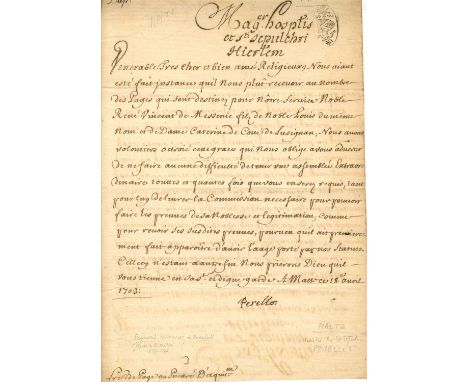 Mag.r hospitis
et s.ti sepulchri
Hierlem
Venerable, Tres cher et bien amé Religieux, Nous aiant
esté fait instances qu'il Nous plût recevoir au nombre
des Pages qui sont destinez pour Nôtre Service Noble
René Vincent de Messenie fils de Noble Louis du même
Nom et de Dame Caterine de de Lusignan, Nous avons
volontiers octroié cette grace qui Nous oblige a vous advertir
de ne faire aucune difficulté de tenir une assemblée Extraor
dinaire toutes et quantes fois que vous en serez requis, tant
pour luy délivrer la Commission necessaire pour pouvoir
faire les preuves de sa Noblesse et legitimation, Comme
pour revoir ses susdites preuves, pourveu qu'il ait premiere
ment fait apparoitre d'avoir l'aage porté par nos Statuts
Celle cy n'estant d'autre fin Nous prierons Dieu qu'il
vous tienne en sa s.te et digne garde A Malte ce 18 avril
1703:
Perellos
MALTE
PERELLOS